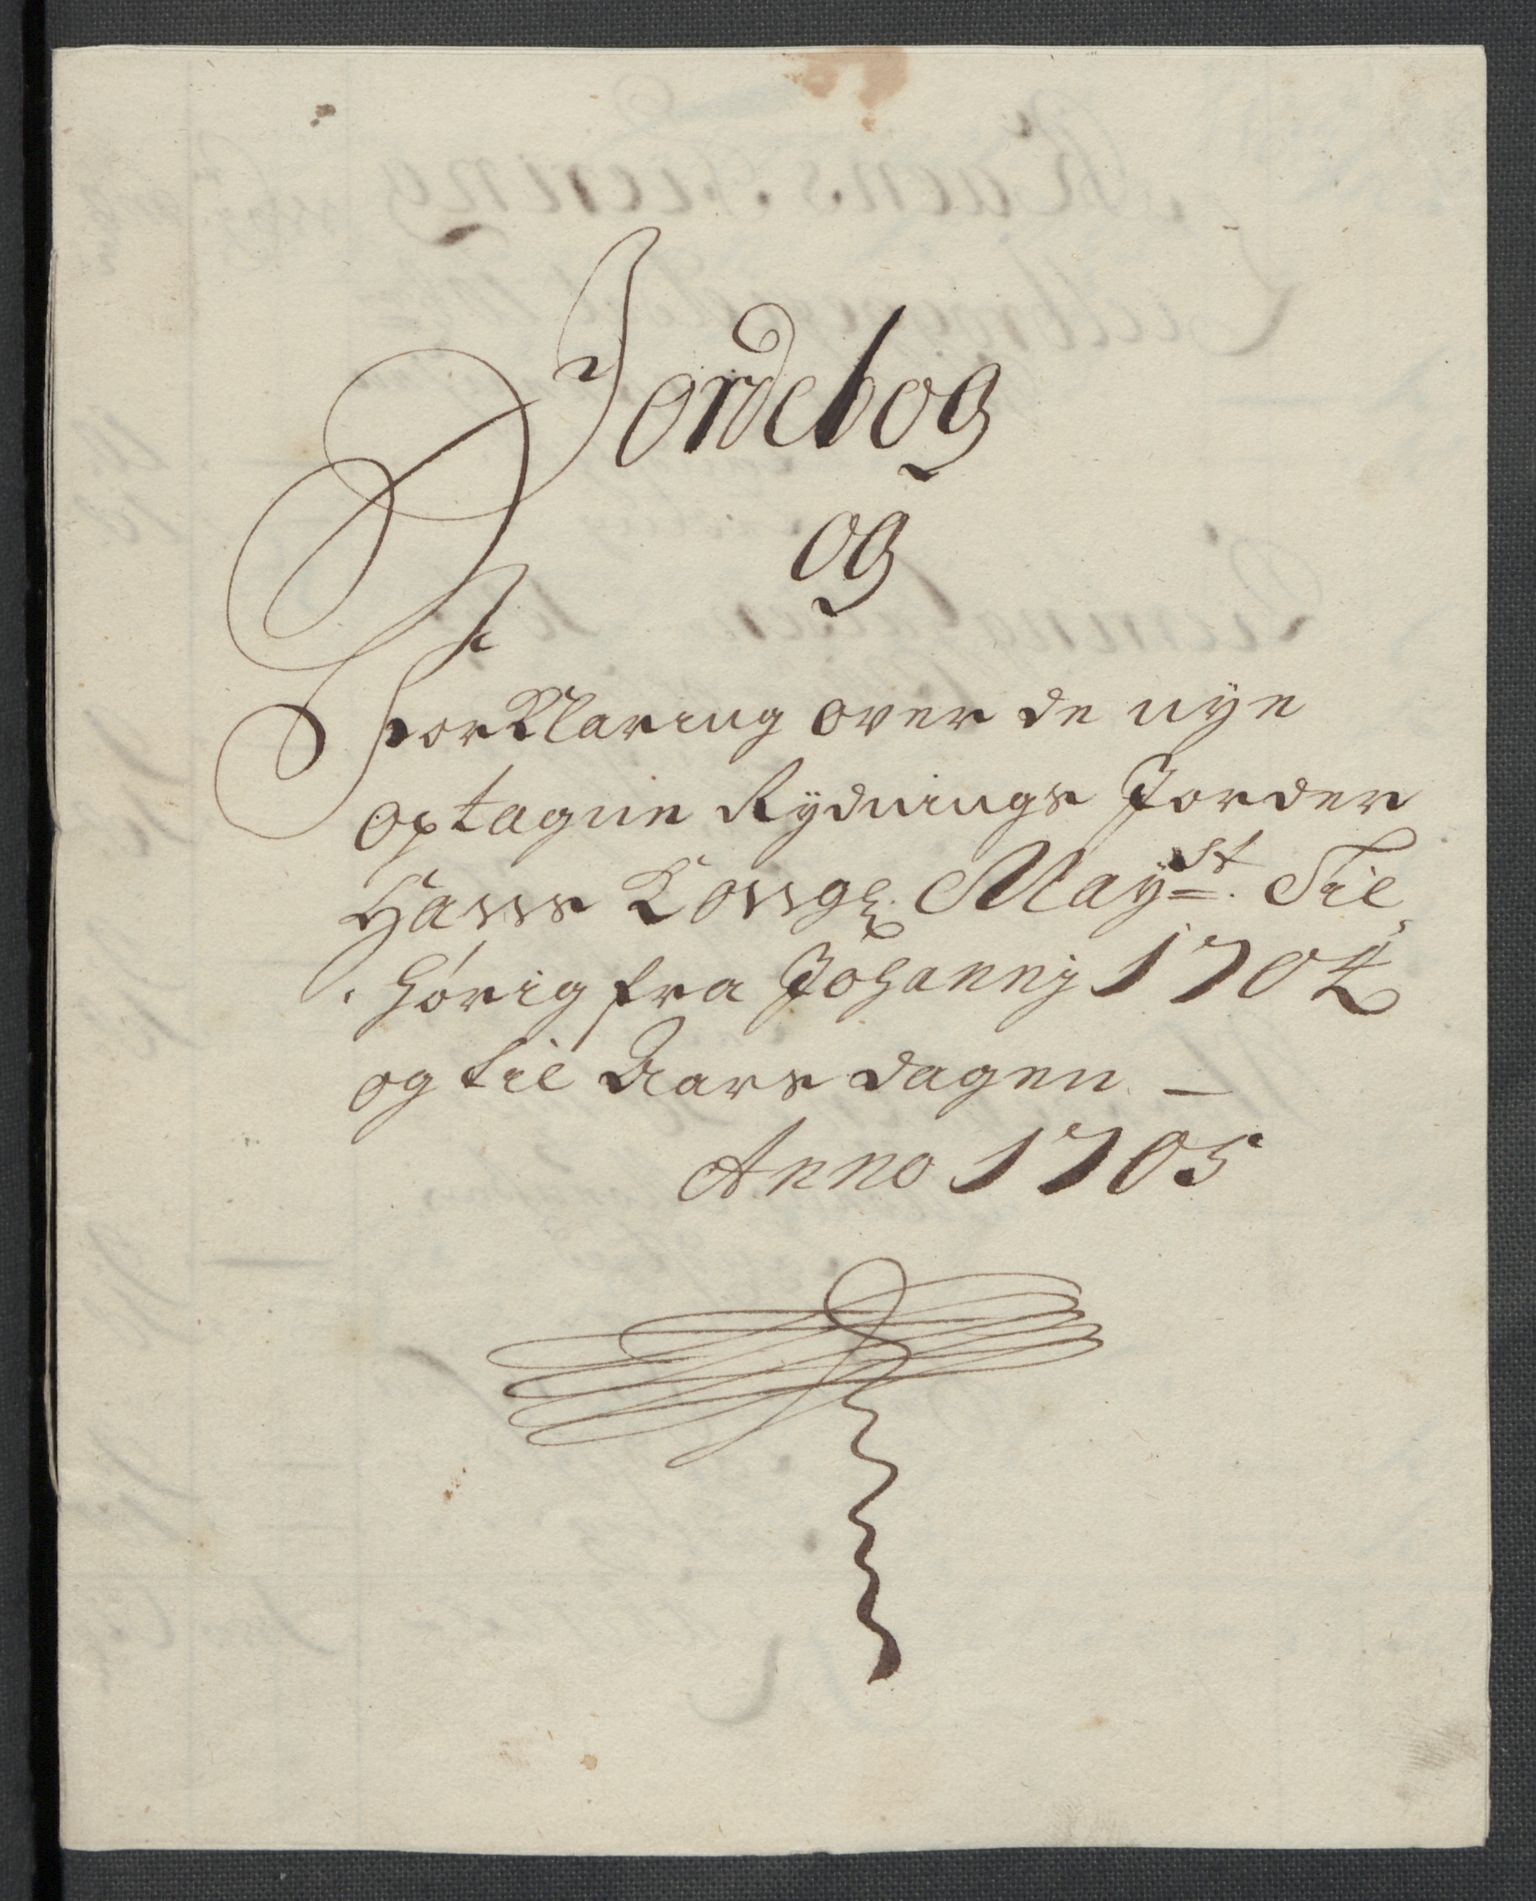 Jordebog
og
Forklaring over de nye
optagne Rydnings Jorder
Hans Kongl. Mayst. Til,
hørig fra Johannj 1704
og til Aars dagen
Anno 1705